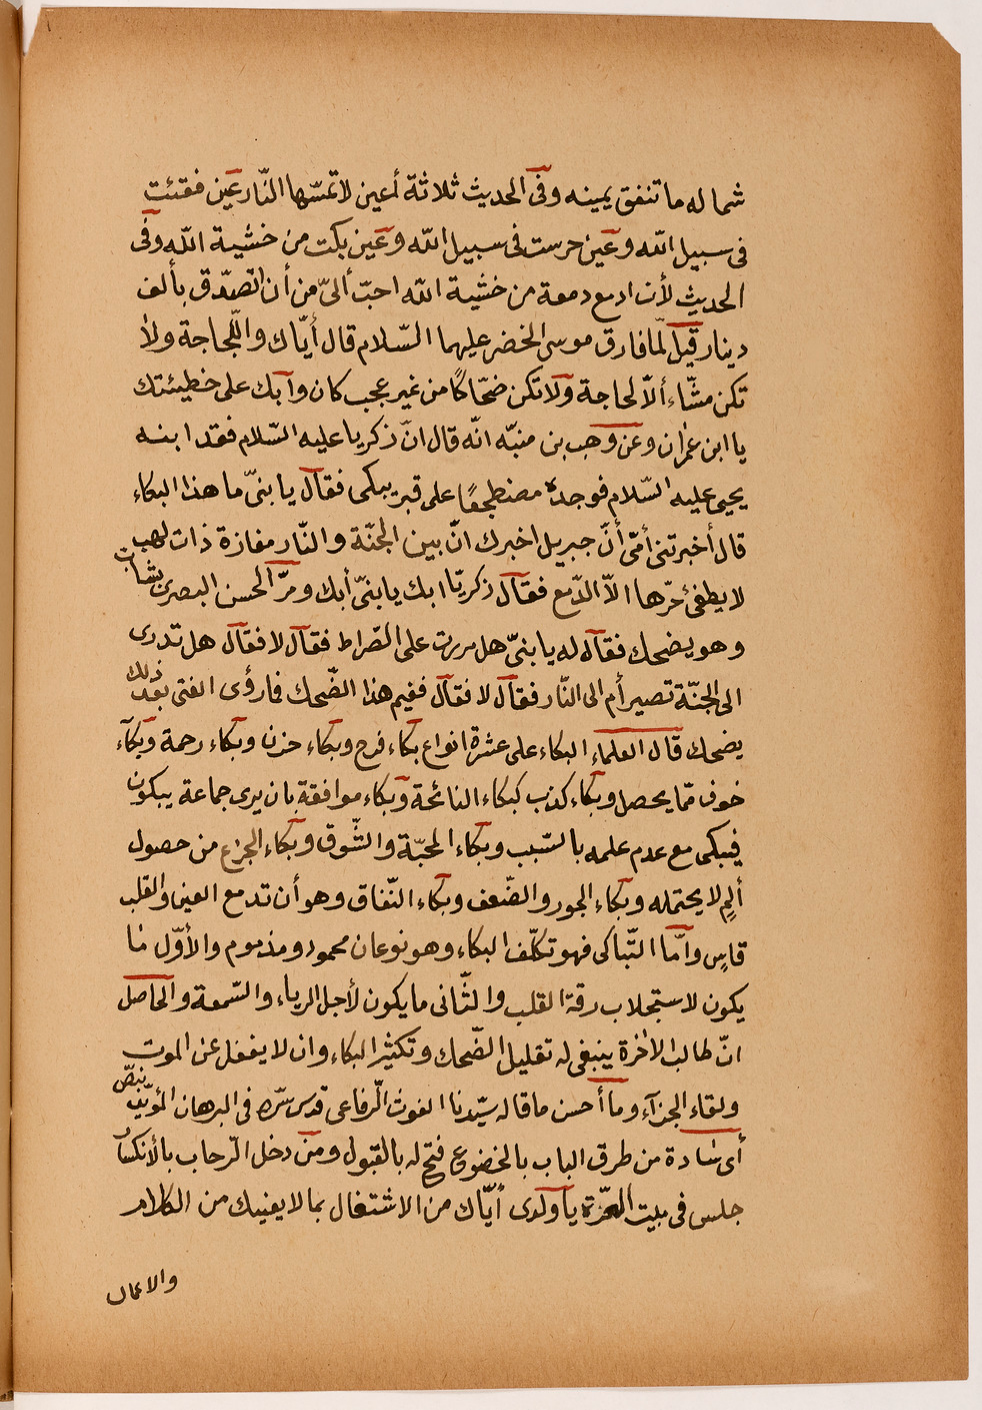 شماله ما تنفق يمينه وفى الحديث ثلاثة أعين لا تمسّها النّار عين فقئت
فى سبيل الله وعين حرست فى سبيل الله وعين بكت من خشية الله وفى
الحديث لأن ادمع دمعة من خشية الله احبّ ألىّ من أن اتصدّق بألف
دينار قيل لمّا فارق موسى الخضر عليهما السّلام قال أيّاك واللّجاجة ولا
تكن مشّاء ألاّ لحاجة ولا تكن ضحّاكًا من غير عجب كان وآبك على خطيئتك
يا ابن عمران وعن وهب بن منبّه انّه قال انّ زكريا عليه السّلام فقد ابنه
يحيى عليه السّلام فوجده مضطجعًا على قبر يبكى فقال يا بنىّ ما هذا البكاء
قال أخبرتنى أمّى أنّ جبريل اخبرك انّ بين الجنّة والنّار مفازة ذات لهب
لا يطفئ حرّها الاّ الدّمع فقال زكريّا ابك يا بنىّ أبك ومرّ الحسن البصرى بشاب
وهو يضحك فقال له يا بنىّ هل مررت على الصّراط فقال لا فقال هل تدرى
الى الجنّة تصير أم الى النّار فقال لا فقال ففيم هذا الضّحك فما رؤى الفتى بعد ذلك
يضحك قال العلماء البكاء على عشرة انواع بكاء فرح وبكاء حزن وبكاء رحمة وبكآء
خوف ممّا يحصل وبكاء كذب كبكاء النائحة وبكاء موافقة بان يرى جماعة يبكون
فيبكى مع عدم علمه بالسّبب وبكاء المحبّة والشّوق وبكاء الجزع من حصول
ألمٍ لا يحتمله وبكاء الجور والضّعف وبكاء النّفاق وهو أن تدمع العين والقلب
قاسٍ وامّا التّباكى فهو تكلّف البكاء وهو نوعان محمود ومذموم والأوّل ما
يكون لاستجلاب رقة القلب والثّانى ما يكون لأجل الرياء والسّمعة والحاصل
انّ طالب الاخرة ينبغى له تقليل الضّحك وتكثير البكاء وان لا يغفل عن الموت
ولقاء الجزآء وما أحسن ما قاله سيّدنا الغوث الرّفاعى قدس سرّه فى البرهان المؤيّد بنصّ
أى سادة من طرق الباب بالخضوع فتح له بالقبول ومن دخل الرّحاب بالأنكسار
جلس فى بيت العزّة يا ولدى أيّاك من الاشتغال بما لا يعنيك من الكلام
والاعمال